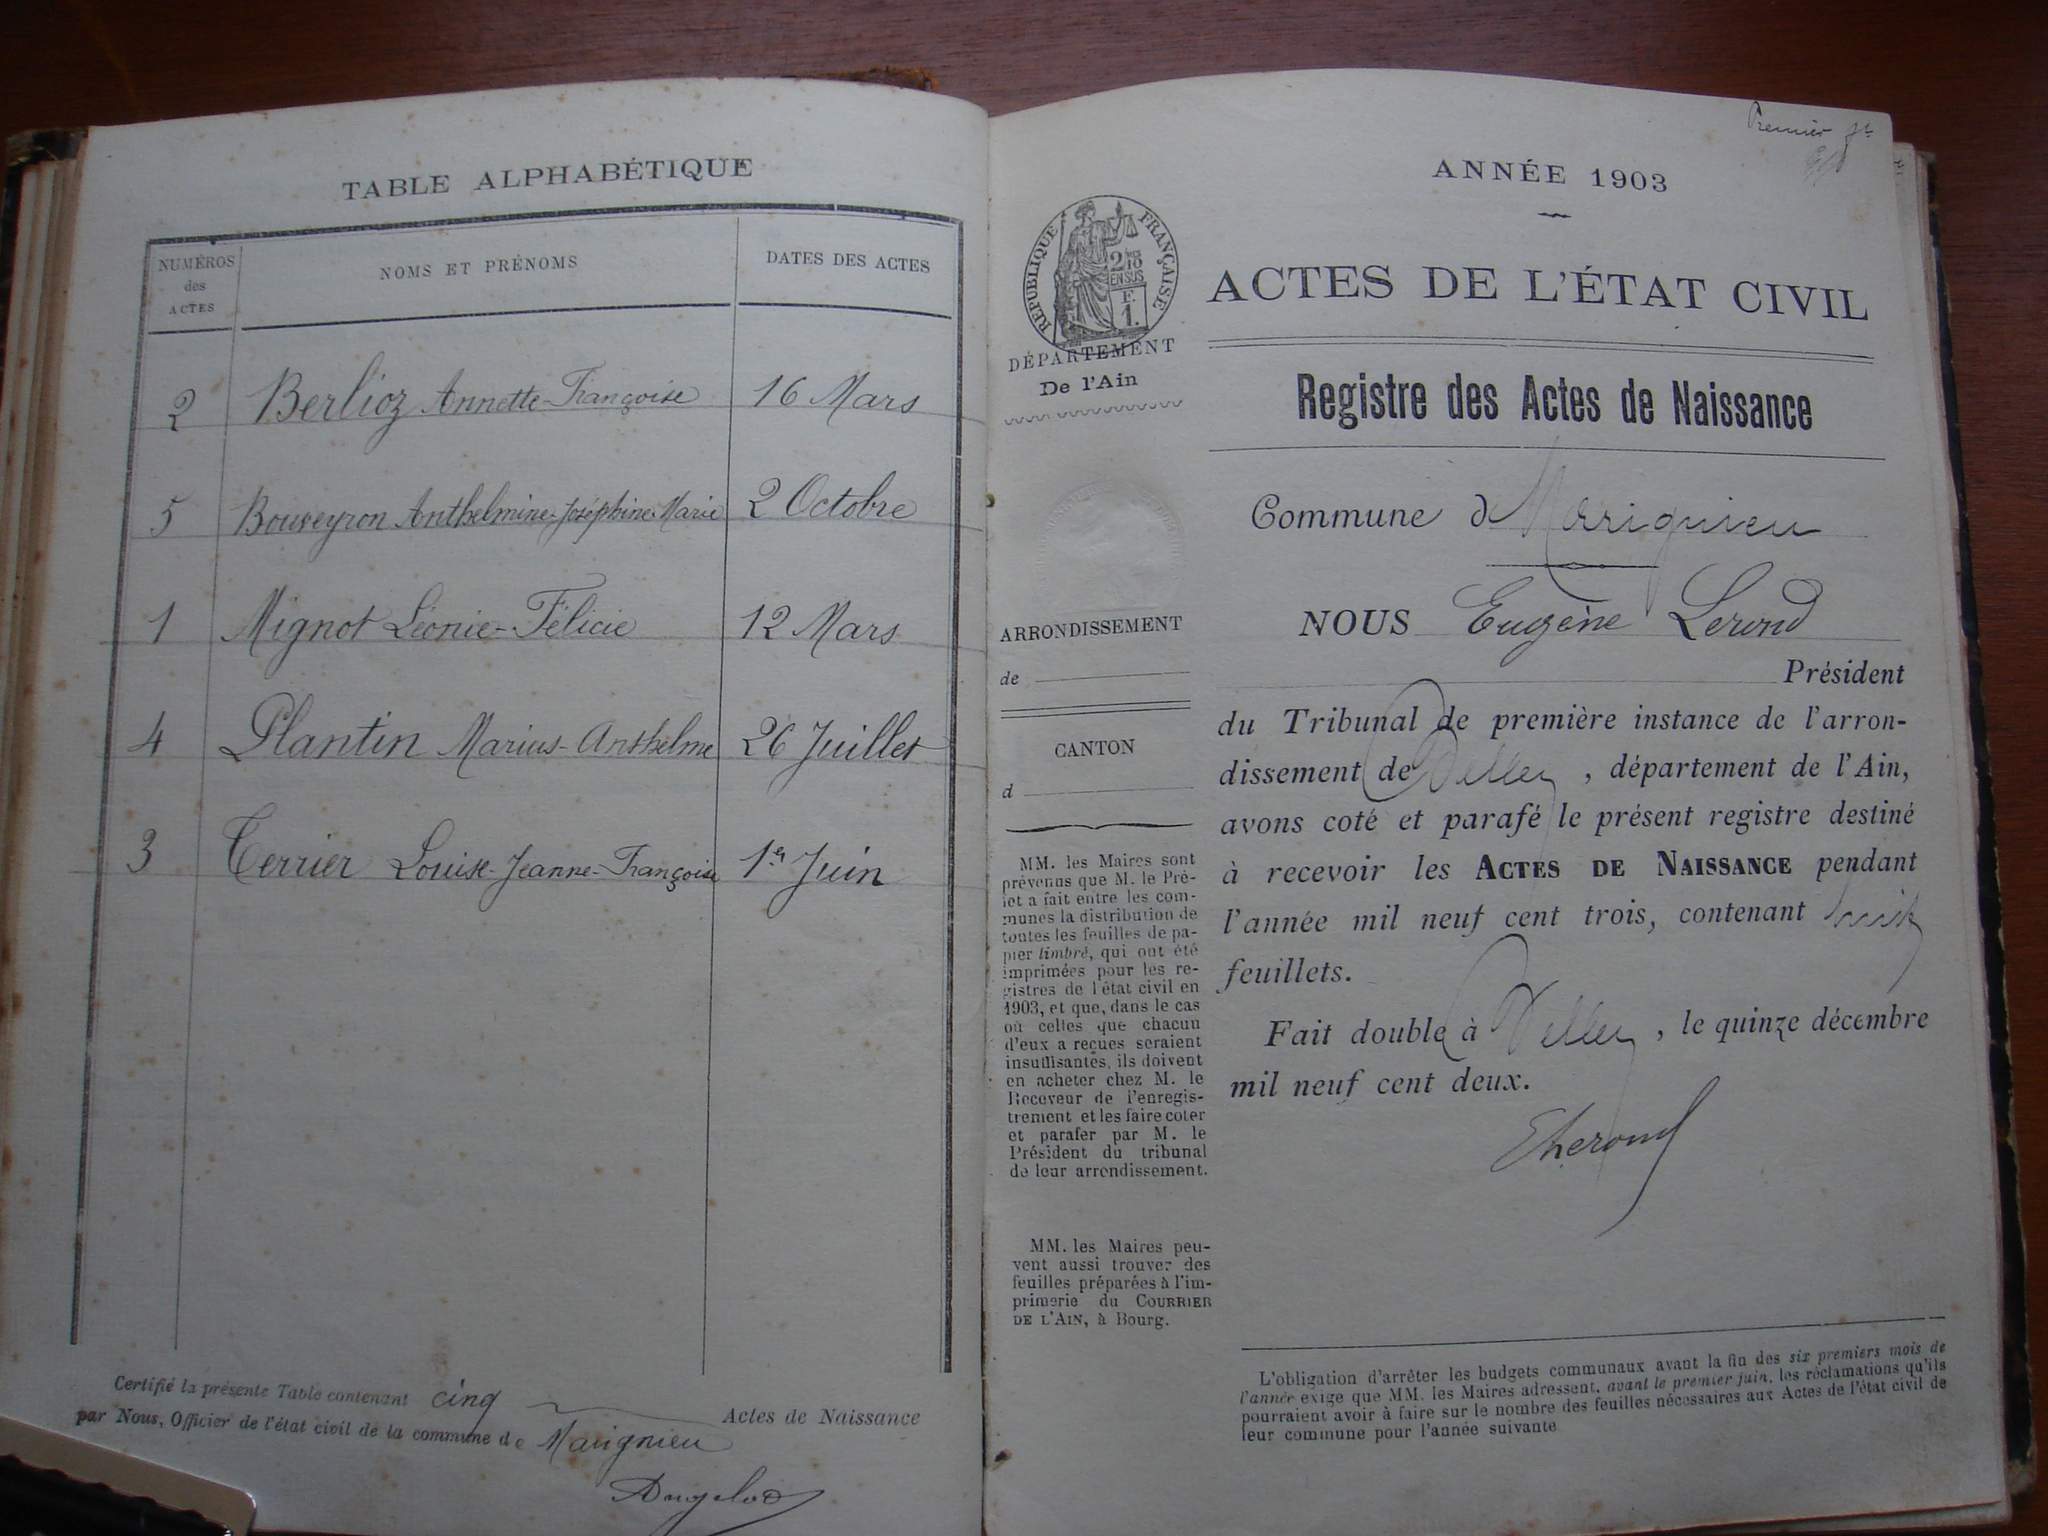 TABLE ALPHABÉTIQUE
NUMÉROS des ACTES
NOMS ET PRÉNOMS
DATES DES ACTES
2 Berlioz Annette-Françoise 16 Mars
5 Bouveyron Anthelmine-Joséphine-Marie 2 Octobre
1 Mignot Léonie-Félicie 12 Mars
4 Plantin Marius-Anthelme 26 Juillet
3 Terrier Louise-Jeanne-Françoise 1er Juin
Certifié la présente Table contenant cinq Actes de Naissance
par Nous, Officier de l'état civil de la commune de Marignieu
Premier
ANNÉE 1903
RÉPUBLIQUE FRANÇAISE
DÉPARTEMENT
De l'Ain
ARRONDISSEMENT
de
CANTON
d
MM. les Maires sont
prévenus que M. le Pré-
fet a fait entre les com-
munes la distribution de
toutes les feuilles de pa-
pier timbré, qui ont été
imprimées pour les re-
gistres de l'état civil en
1903, et que, dans le cas
où celles que chacun
d'eux a reçues seraient
insuffisantes, ils doivent
en acheter chez M. le
Receveur de l'enregis-
trement et les faire coter
et parafer par M. le
Président du tribunal
de leur arrondissement.
MM. les Maires peu-
vent aussi trouver des
feuilles préparées à l'im-
primerie du COURRIER
DE L'AIN, à Bourg.
ACTES DE L'ÉTAT CIVIL
Registre des Actes de Naissance
Commune de Marignieu
NOUS Eugène Lerond
Président
du Tribunal de première instance de l'arron-
dissement de Belley, département de l'Ain,
avons coté et parafé le présent registre destiné
à recevoir les ACTES DE NAISSANCE pendant
l'année mil neuf cent trois, contenant huit
feuillets.
Fait double à Belley, le quinze décembre
mil neuf cent deux.
L'obligation d'arrêter les budgets communaux avant la fin des six premiers mois de
l'année exige que MM. les Maires adressent, avant le premier juin, les réclamations qu'ils
pourraient avoir à faire sur le nombre des feuilles nécessaires aux Actes de l'état civil de
leur commune pour l'année suivante